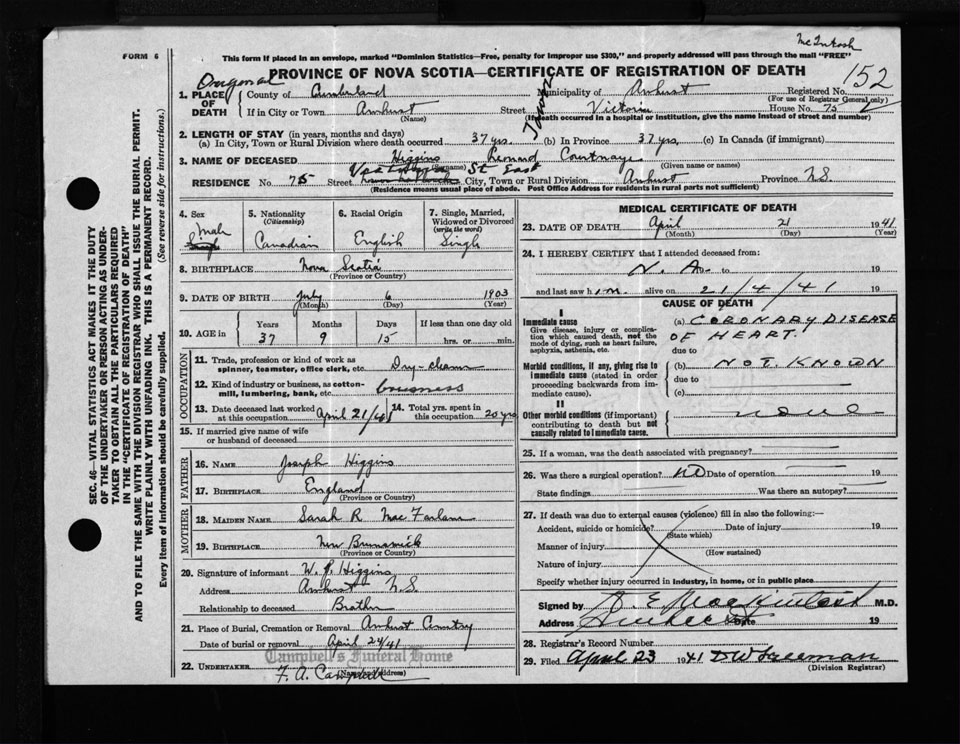 McIntosh
FORM 6
This form if placed in an envelope, marked "Dominion Statistics—Free, penalty for improper use $300," and properly addressed will pass through the mail "FREE"
PROVINCE OF NOVA SCOTIA—CERTIFICATE OF REGISTRATION OF DEATH
152
1. PLACE OF DEATH County of Cumberland Municipality of Amherst Registered No.
(For use of Registrar General only)
If in City or Town Amherst Street Victoria House No. 75
(Name) (If death occurred in a hospital or institution, give the name instead of street and number)
2. LENGTH OF STAY (in years, months and days)
(a) In City, Town or Rural Division where death occurred 37 yrs. (b) In Province 37 yrs. (c) In Canada (if immigrant)
3. NAME OF DECEASED Higgins Leonard Courtnaye
(Surname) (Given name or names)
RESIDENCE No. 75 Street St East City, Town or Rural Division Amherst Province N.S.
(Residence means usual place of abode. Post Office Address for residents in rural parts not sufficient)
4. Sex Male
5. Nationality (Citizenship) Canadian
6. Racial Origin English
7. Single, Married, Widowed or Divorced (write the word) Single
8. BIRTHPLACE Nova Scotia
(Province or Country)
9. DATE OF BIRTH July 6 1903
(Month) (Day) (Year)
10. AGE in Years 37 Months 9 Days 15 If less than one day old hrs. or min.
OCCUPATION
11. Trade, profession or kind of work as spinner, teamster, office clerk, etc. Dry-cleaner
12. Kind of industry or business, as cotton-mill, lumbering, bank, etc. business
13. Date deceased last worked at this occupation April 21/41 14. Total yrs. spent in this occupation 20 yrs
15. If married give name of wife or husband of deceased
FATHER
16. NAME Joseph Higgins
17. BIRTHPLACE England
(Province or Country)
MOTHER
18. MAIDEN NAME Sarah R MacFarlane
19. BIRTHPLACE New Brunswick
(Province or Country)
20. Signature of informant W. P. Higgins
Address Amherst N.S.
Relationship to deceased Brother
21. Place of Burial, Cremation or Removal Amherst Cemetery
Date of burial or removal April 24/41
Campbell's Funeral Home
22. UNDERTAKER F. A. Campbell
(Name and address)
MEDICAL CERTIFICATE OF DEATH
23. DATE OF DEATH April 21 1941
(Month) (Day) (Year)
24. I HEREBY CERTIFY that I attended deceased from
N. A. to 19
and last saw him alive on 21/4/41 19
CAUSE OF DEATH
I
Immediate cause
Give disease, injury or complication which caused death, not the mode of dying, such as heart failure, asphyxia, asthenia, etc.
(a) CORONARY DISEASE OF HEART.
due to
Morbid conditions, if any, giving rise to immediate cause (stated in order proceeding backwards from immediate cause).
(b) NOT KNOWN
due to
(c)
II
Other morbid conditions (if important) contributing to death but not causally related to immediate cause.
none
25. If a woman, was the death associated with pregnancy?
26. Was there a surgical operation? NO Date of operation 19
State findings Was there an autopsy?
27. If death was due to external causes (violence) fill in also the following:—
Accident, suicide or homicide? Date of injury 19
(State which)
Manner of injury
(How sustained)
Nature of injury
Specify whether injury occurred in industry, in home, or in public place
Signed by M.D.
Address Amherst Date 19
28. Registrar's Record Number
29. Filed April 23 1941 D W Freeman
(Division Registrar)
SEC. 46—VITAL STATISTICS ACT MAKES IT THE DUTY
OF THE UNDERTAKER OR PERSON ACTING AS UNDER-
TAKER TO OBTAIN ALL THE PARTICULARS REQUIRED
IN THE "CERTIFICATE OF REGISTRATION OF DEATH"
AND TO FILE THE SAME WITH THE DIVISION REGISTRAR WHO SHALL ISSUE THE BURIAL PERMIT.
WRITE PLAINLY WITH UNFADING INK. THIS IS A PERMANENT RECORD.
Every item of information should be carefully supplied. (See reverse side for instructions.)